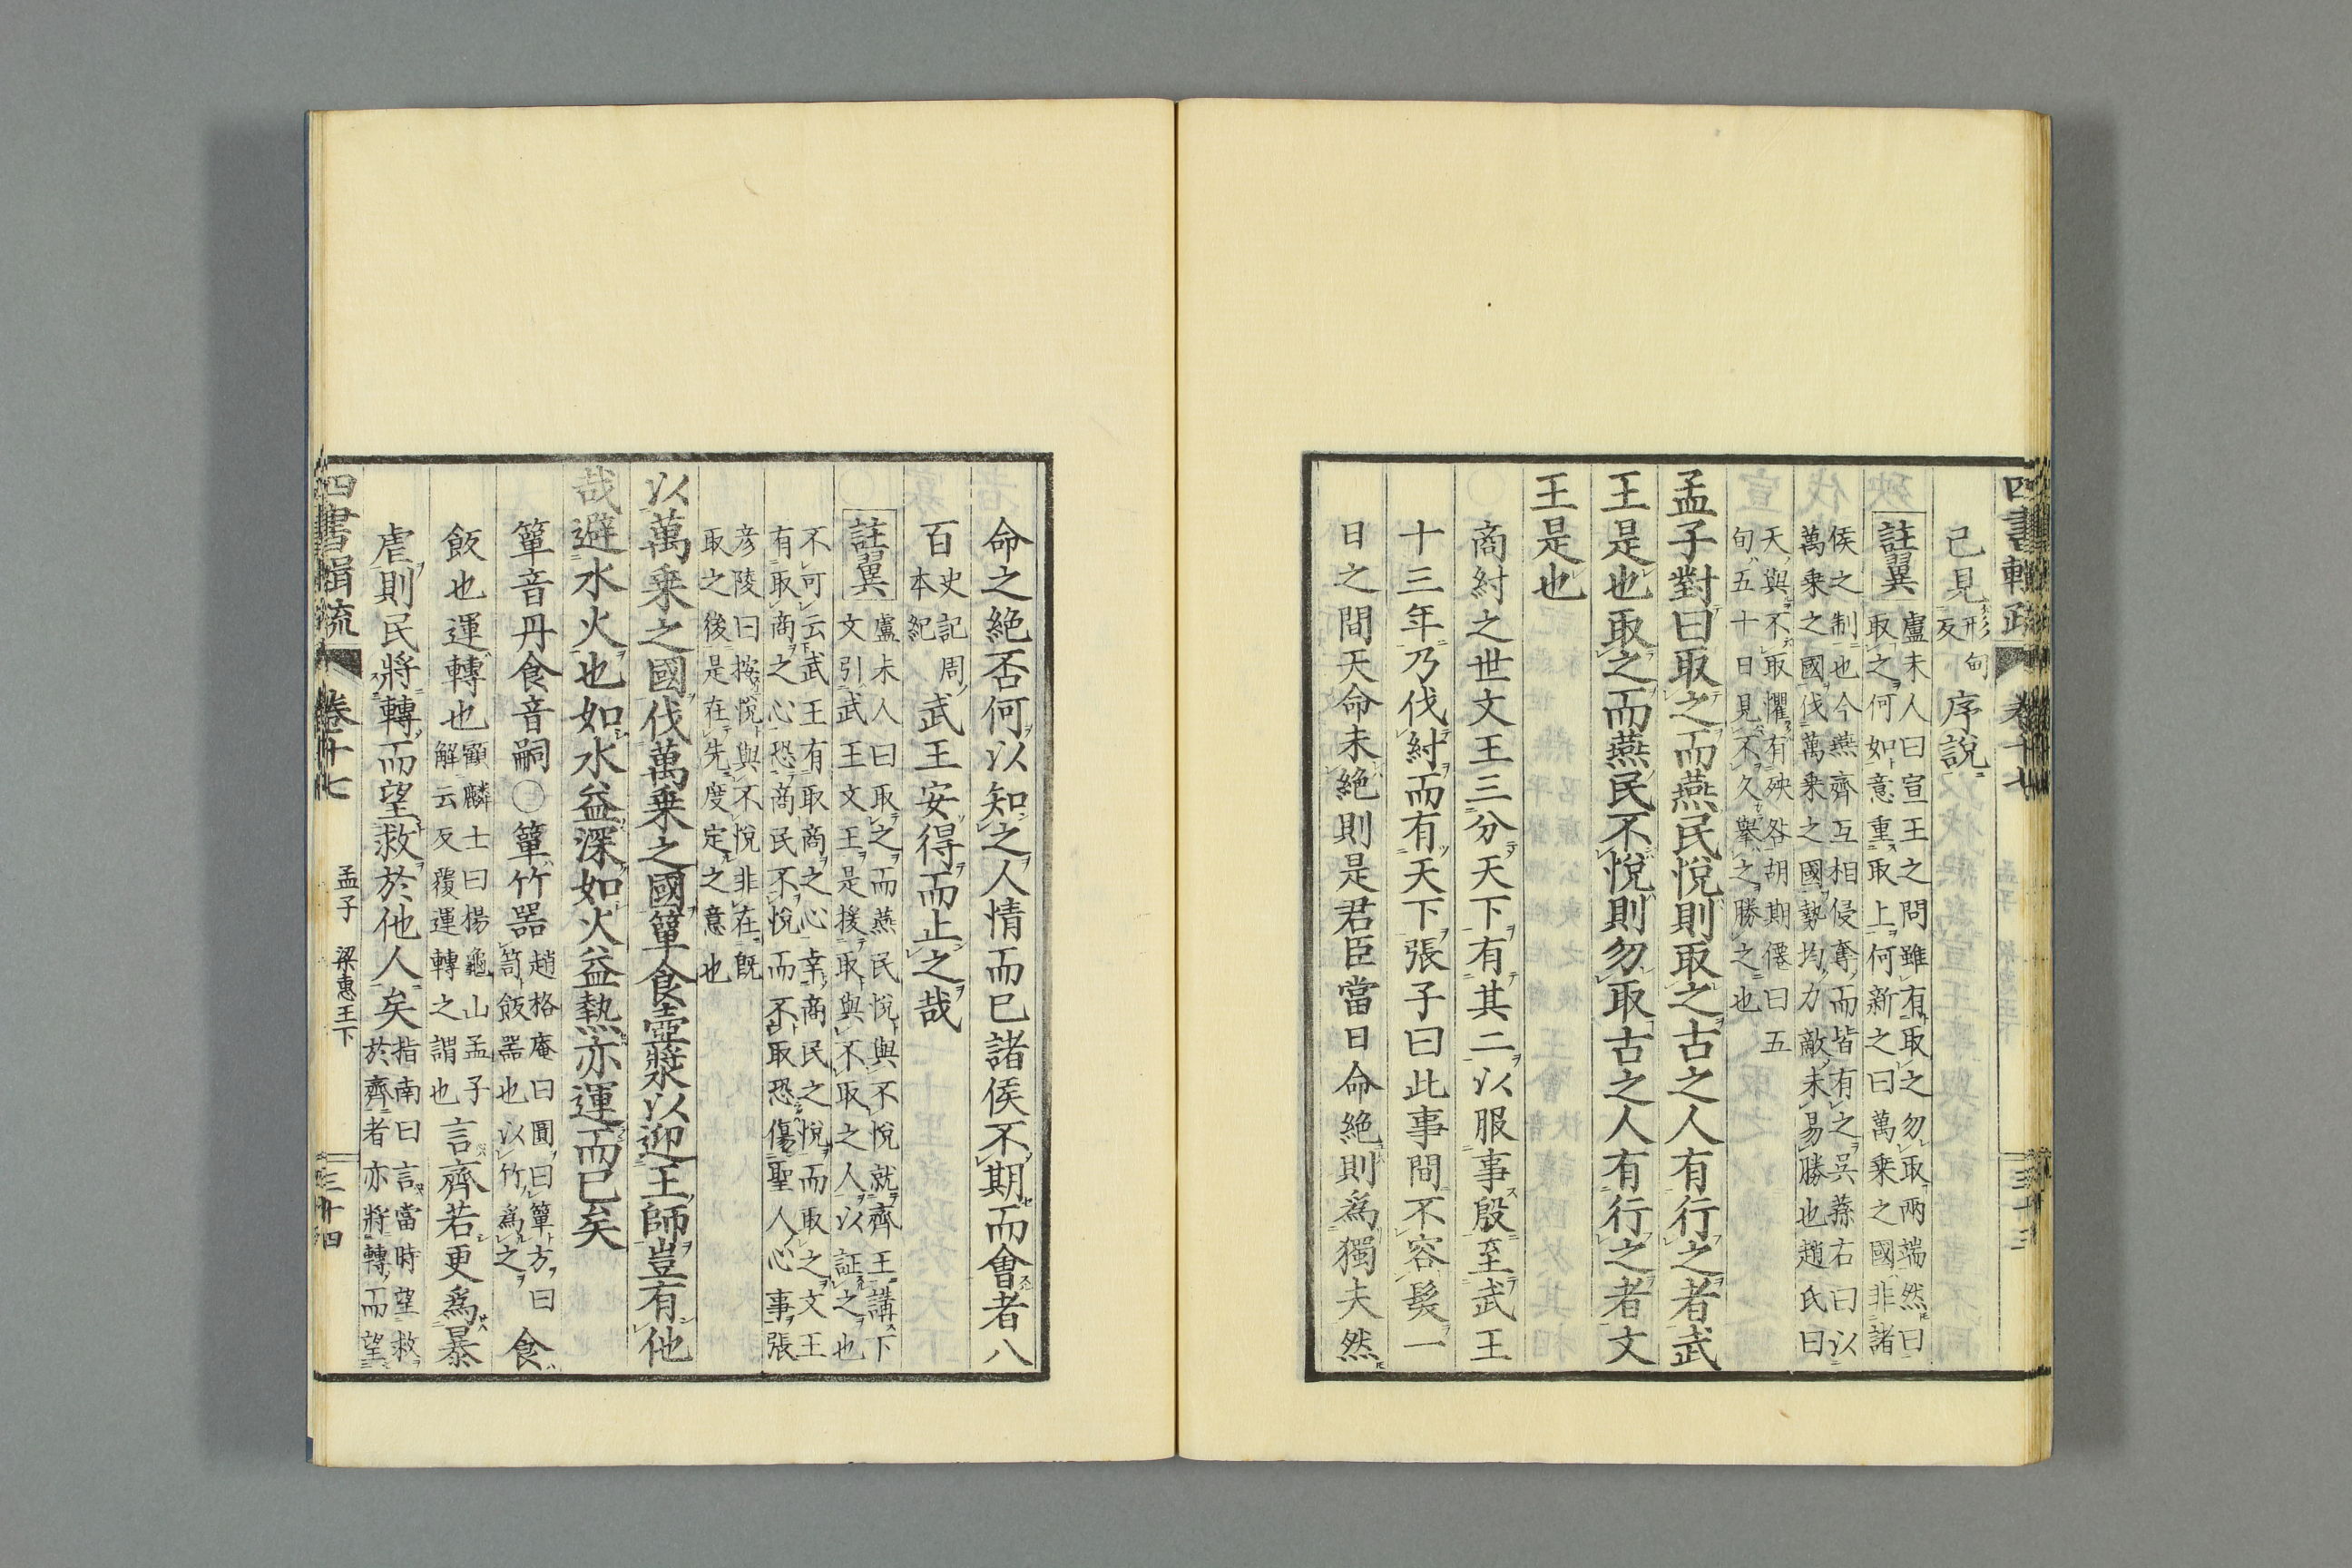 四書輯疏 卷十七 三十三
已見形甸反序說
註翼 盧未人曰宣王之問雖有取之勿取兩端然曰
取之何如意重取上何新之曰萬乘之國非諸
侯之制也今燕齊互相侵奪而皆有之吳蓀右曰以
萬乘之國伐萬乘之國勢均力敵未易勝也趙氏曰
天與不取懼有殃咎胡期僊曰五
旬五十日見不久舉之勝之也
孟子對曰取之而燕民悅則取之古之人有行之者武
王是也取之而燕民不悅則勿取古之人有行之者文
王是也
商紂之世文王三分天下有其二以服事殷至武王
十三年乃伐紂而有天下張子曰此事間不容髮一
日之間天命未絶則是君臣當日命絶則爲獨夫然
命之絶否何以知之人情而已諸侯不期而會者八
百史記周本紀武王安得而止之哉
註翼 盧未人曰取之而燕民悅與不悅就齊王講下
文引武王文王是援取與不取之人以証之也
不可云武王有取商之心幸商民之悅而取之文王
有取商之心恐商民不悅而不取恐傷聖人心事張
彦陵曰按悅與不悅非在既
取之後是在先度定之意也
以萬乘之國伐萬乘之國簞食壺漿以迎王師豈有他
哉避水火也如水益深如火益熱亦運而已矣
簞音丹食音嗣〇簞竹器趙格庵曰圓曰簞方曰笥飯器也以竹爲之食
飯也運轉也顧麟士曰楊龜山孟子解云反覆運轉之謂也言齊若更爲暴
虐則民將轉而望救於他人矣指南曰言當時望救於齊者亦將轉而望
四書輯疏 卷十七 孟子 梁惠王下 三十四